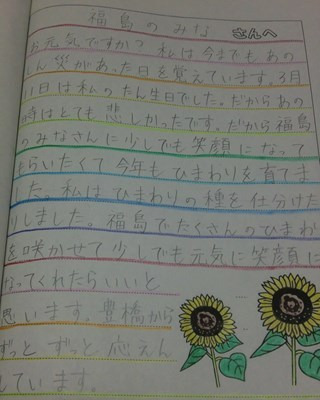 福島のみなさんへ
お元気ですか？私は今までもあの
しん災があった日を覚えています。3月
11日は私のたん生日でした。だからあの
時はとても悲しかったです。だから福島
のみなさんに少しでも笑顔になって
もらいたくて今年もひまわりを育てま
した。私はひまわりの種を仕分けた
りしました。福島でたくさんのひまわ
を咲かせて少しでも元気に笑顔に
なってくれたらいいと
思います。豊橋から
ずっとずっと応えん
しています。